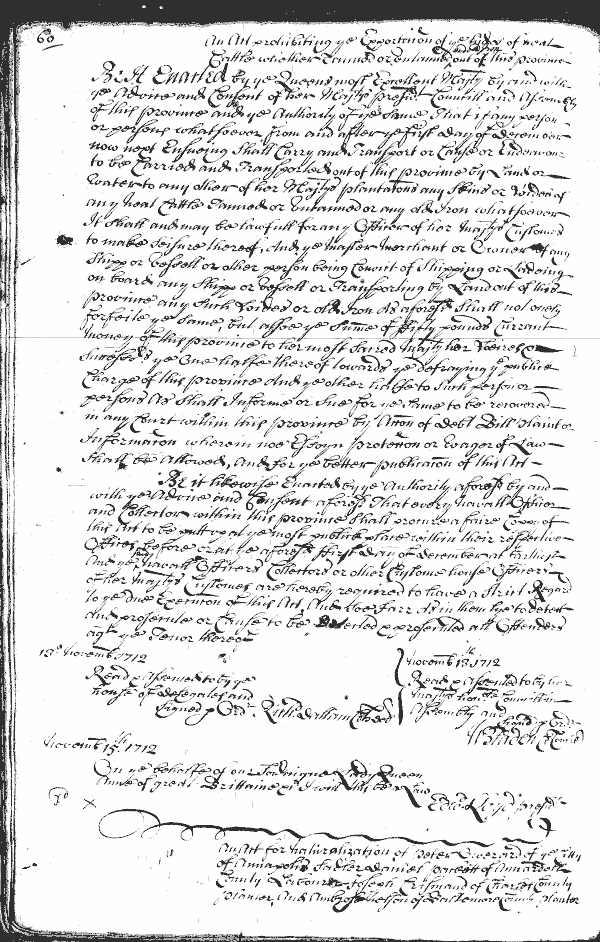 60
An Act prohibiting ye Exportation of ye hydes of neat
Cattle whether Tanned or untanned out of this province
Be it Enacted by ye Queens most Excellent Majty by and with
ye Advice and Consent of her Majtys presidt Councill and Assembly
of this province and ye Authority of ye same That if any person
or persons whatsoever from and after ye first day of december
now next Ensueing Shall Carry and Transport or Cause or Endeavour
to be Carried and Transported out of this province by Land or
Water to any other of her Majtys plantations any Skins or hides of
any neat Cattle Tanned or untanned or any old Iron whatsoever
It shall and may be lawfull for any Officer of her Majtys Customes
to make seisure thereof, And ye Master Merchant or Owner of any
Shipp or vessell or other person being Convict of Shipping or Ladeing
on board any Shipp or vessell or Transporting by Land out of this
province any such hides or old Iron As aforesd Shall not only
forfeite ye same, but allsoe ye Summe of fifty pounds Currant
money of this province to her most Sacred Majty her heires &
Successrs ye One halfe thereof towards ye defraying ye publick
Charge of this province And ye other halfe to such person or
persons As Shall Informe or Sue for ye same to be recovered
in any Court within this province by Accon of debt Bill plaint or
Information wherein noe Essoyn protection or Wager of Law
Shall be Allowed, And for ye better publication of this Act
Be it likewise Enacted by ye Authority aforesd by and
with ye Advice and Consent aforesd That every Navall Officer
and Collector within this province Shall procure a faire Coppy of
this Act to be putt up at ye most publick place within their respective
Offices before or at ye aforesd first day of december at furthest
And ye Navall Officers Collectors or other Custome house Officers
of her Majtys Customes are hereby required to have a Strict Regard
to ye due Execution of this Act, And soe farr As in them lye to detect
and prosecute or Cause to be detected & prosecuted all Offenders
agt ye Tenor thereof
13th Novemb 1712
Read & Assented to by ye
house of delegates and
Signed p Ordr Richd dallam Cl hs del
Novemb 13th 1712
Read & Assented to by her
Majtys honble Councill in
Assembly and
Signed p Ordr
W Bladen Cl Councl
Novemb 15th 1712
On ye behalfe of our Sovereigne Lady Queen
Anne of great Brittaine &c I will this be a Law
Edwd Lloyd presidt
An Act for Naturalization of Peter Overard of ye Citty
of Annapolis Sadler daniel of Annarundell
County Labourer Joseph of Charles County
planter, And Ambrose Nelson of Baltemore County planter